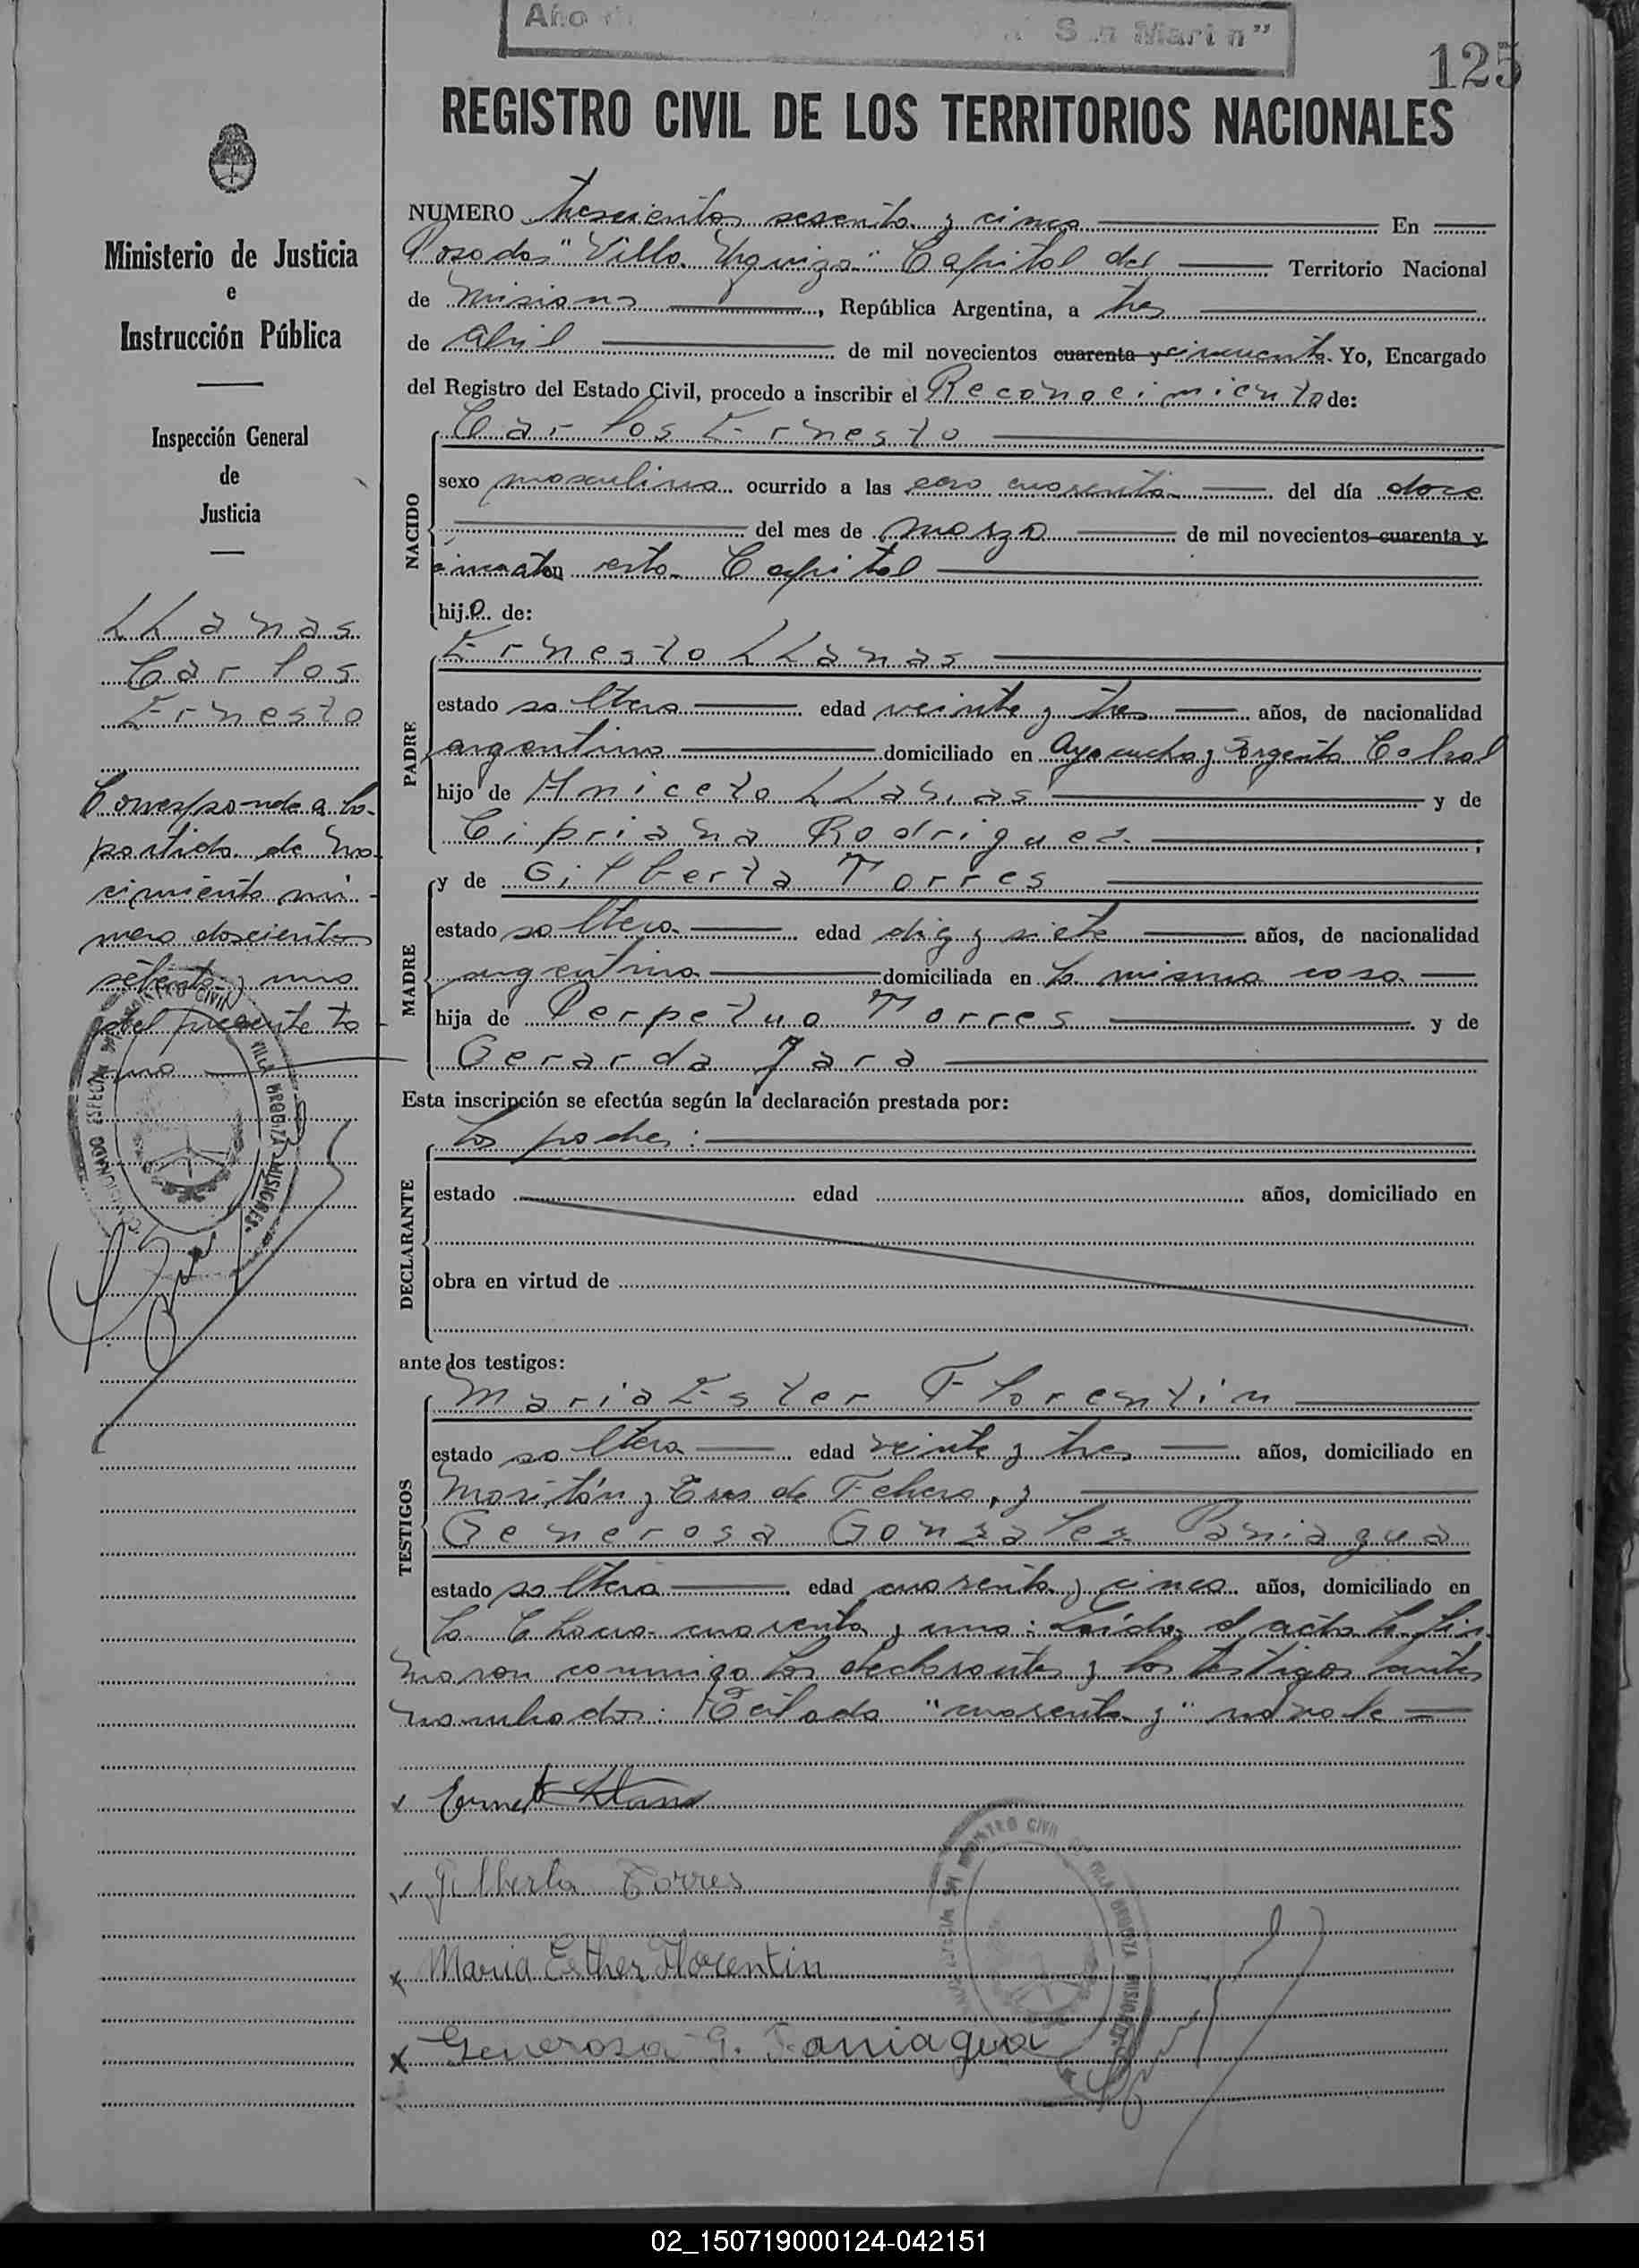 Año San Martin"
125
REGISTRO CIVIL DE LOS TERRITORIOS NACIONALES
Ministerio de Justicia
e
Instrucción Pública
Inspección General
de
Justicia
LLanas
Carlos
Ernesto
Corresponde a la
partida de na-
cimiento nú-
mero doscientos
setenta y uno
del presente to-
mo
NUMERO trescientos sesenta y cinco En
Posadas "Villa Urquiza" Capital del Territorio Nacional
de Misiones, República Argentina, a tres
de abril de mil novecientos cuarenta y cincuenta. Yo, Encargado
del Registro del Estado Civil, procedo a inscribir el Reconocimiento de:
NACIDO
Carlos Ernesto
sexo masculino ocurrido a las cero cuarenta del día doce
del mes de marzo de mil novecientos cuarenta y
cincuenta en esta Capital
hijo de:
PADRE
Ernesto LLanas
estado soltero edad veinte y tres años, de nacionalidad
argentino domiciliado en Ayacucho y Sargento Cabral
hijo de Aniceto LLanas y de
Cipriana Rodriguez
MADRE
y de Gilberta Torres
estado soltera edad diez y siete años, de nacionalidad
argentina domiciliada en la misma casa
hija de Perpetuo Torres y de
Gerarda Jara
Esta inscripción se efectúa según la declaración prestada por:
DECLARANTE
los padres:
estado edad años, domiciliado en
obra en virtud de
ante los testigos:
TESTIGOS
Maria Ester Florentin
estado soltera edad veinte y tres años, domiciliado en
y Tres de Febrero, y
Generosa Gonzalez Paniagua
estado soltera edad cuarenta y cinco años, domiciliado en
la Chacra cuarenta y uno: Leída el acta la fir-
maron conmigo los declarantes y los testigos antes
nombrados: Testado "cuarenta y" no vale
x Ernesto Llanas
x Gilberta Torres
x Maria Esther Florentin
x Generosa G. Paniagua
REGISTRO CIVIL VILLA URQUIZA MISIONES
02_150719000124-042151